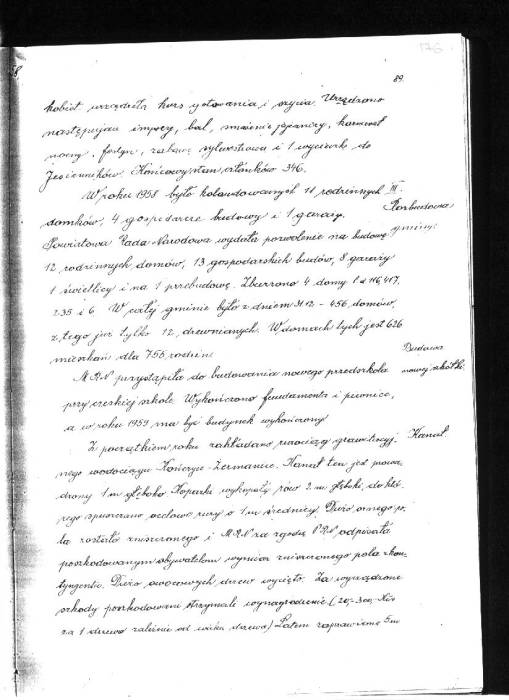 176
89
kobiet urządziła kurs gotowania i szycia. Urządzono
następujące imprezy, bal, smażenie jajecznicy, karnawał
nocny, festyn, zabawę sylwestrową i 1 wycieczkę do
Jesienników. Końcowy stan członków 346.
W roku 1958 było kolaudowanych 11 rodzinnych III.
domków, 4 gospodarcze budowy i 1 garaży. Rozbudowa
Powiatowa Rada Narodowa wydała pozwolenie na budowę gminy:
12 rodzinnych domów, 13 gospodarskich budów, 8 garaży
1 świetlicy i na 1 przebudowę. Zburzono 4 domy
235 i 6 W całej gminie było z dniem 31.12 - 456 domów,
z tego już tylko 12 drewnianych. W domach tych jest 626
mieszkań dla 755 rodzin. Budowa
MRN przystąpiła do budowania nowego przedszkola nowej szkółki.
przy czeskiej szkole. Wykończono fundamenta i piwnice,
a w roku 1959 ma być budynek wykończony
Z początkiem roku zakładano rurociąg grawitacyj- Kanał
nego wodociągu Kończyce - Żermanice. Kanał ten jest prowa-
dzony 1 m głęboko. Koparka wykopały rów 2 m głęboki, do któ-
rego spuszczano ocelowe rury o 1 m średnicy. Dużo ornego po-
la zostało zniszczonego i MRN za zgodą ORN odpisała
poszkodowanym obywatelom wymiar zniszczonego pola z kon-
tyngentu. Dużo owocowych drzew wycięto. Za wyrządzone
szkody poszkodowani otrzymali wynagrodzenie (20,- 300,- Kčs
za 1 drzewo zależnie od wieku drzewa) Latem zaprawiono 5 m